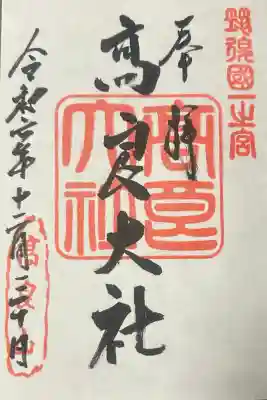 筑後國一之宮
奉拝
高良大社
高良大社
令和四年十二月 十日
高良山